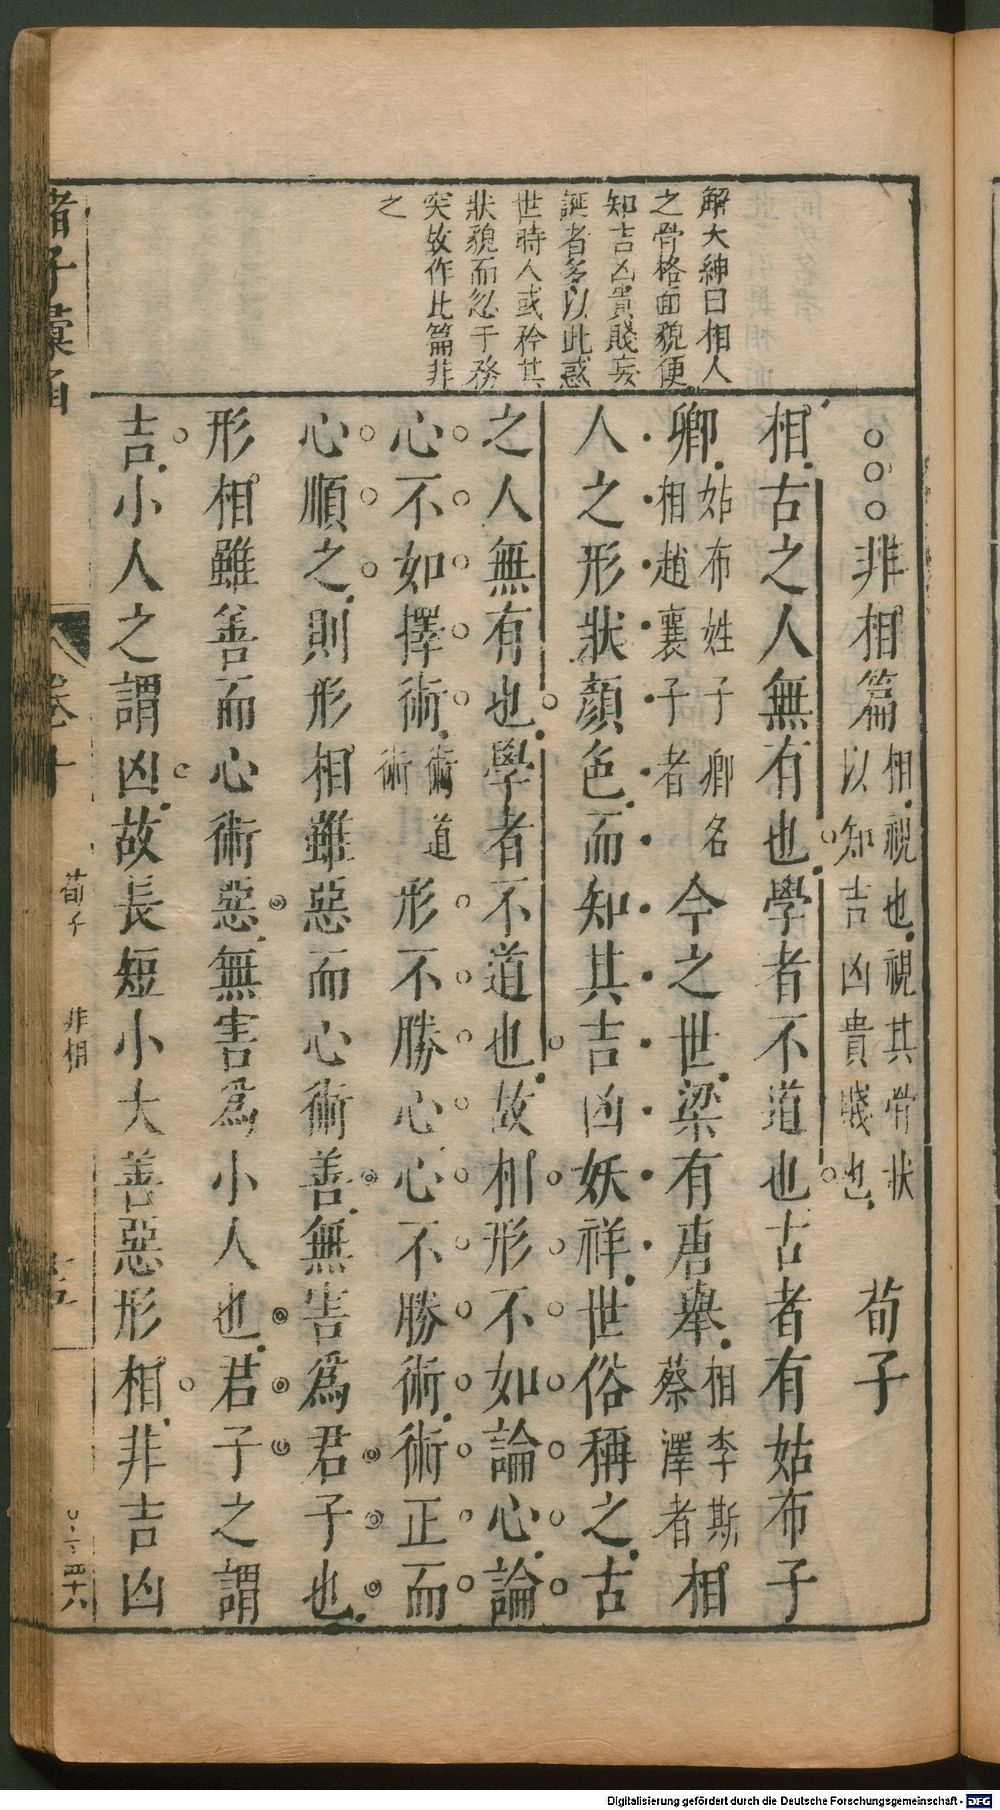 解大紳曰相人
之骨格面貌便
知吉凶貴賤妄
誕者多以此惑
世時人或矜其
狀貌而忽于務
実故作此篇非
之
○○○非相篇 相視也視其骨狀以知吉凶貴賤也 荀子
相古之人無有也學者不道也古者有姑布子
卿 姑布姓子卿名相趙襄子者 今之世梁有唐舉 相李斯蔡澤者 相
人之形狀顏色而知其吉凶妖祥世俗稱之古
之人無有也學者不道也故相形不如論心論
心不如擇術 術道術 形不勝心心不勝術術正而
心順之則形相雖惡而心術善無害爲君子也
形相雖善而心術惡無害爲小人也君子之謂
吉小人之謂凶故長短小大善惡形相非吉凶
諸子彙函
卷十
荀子 非相
○二四十八
Digitalisierung gefördert durch die Deutsche Forschungsgemeinschaft - DFG